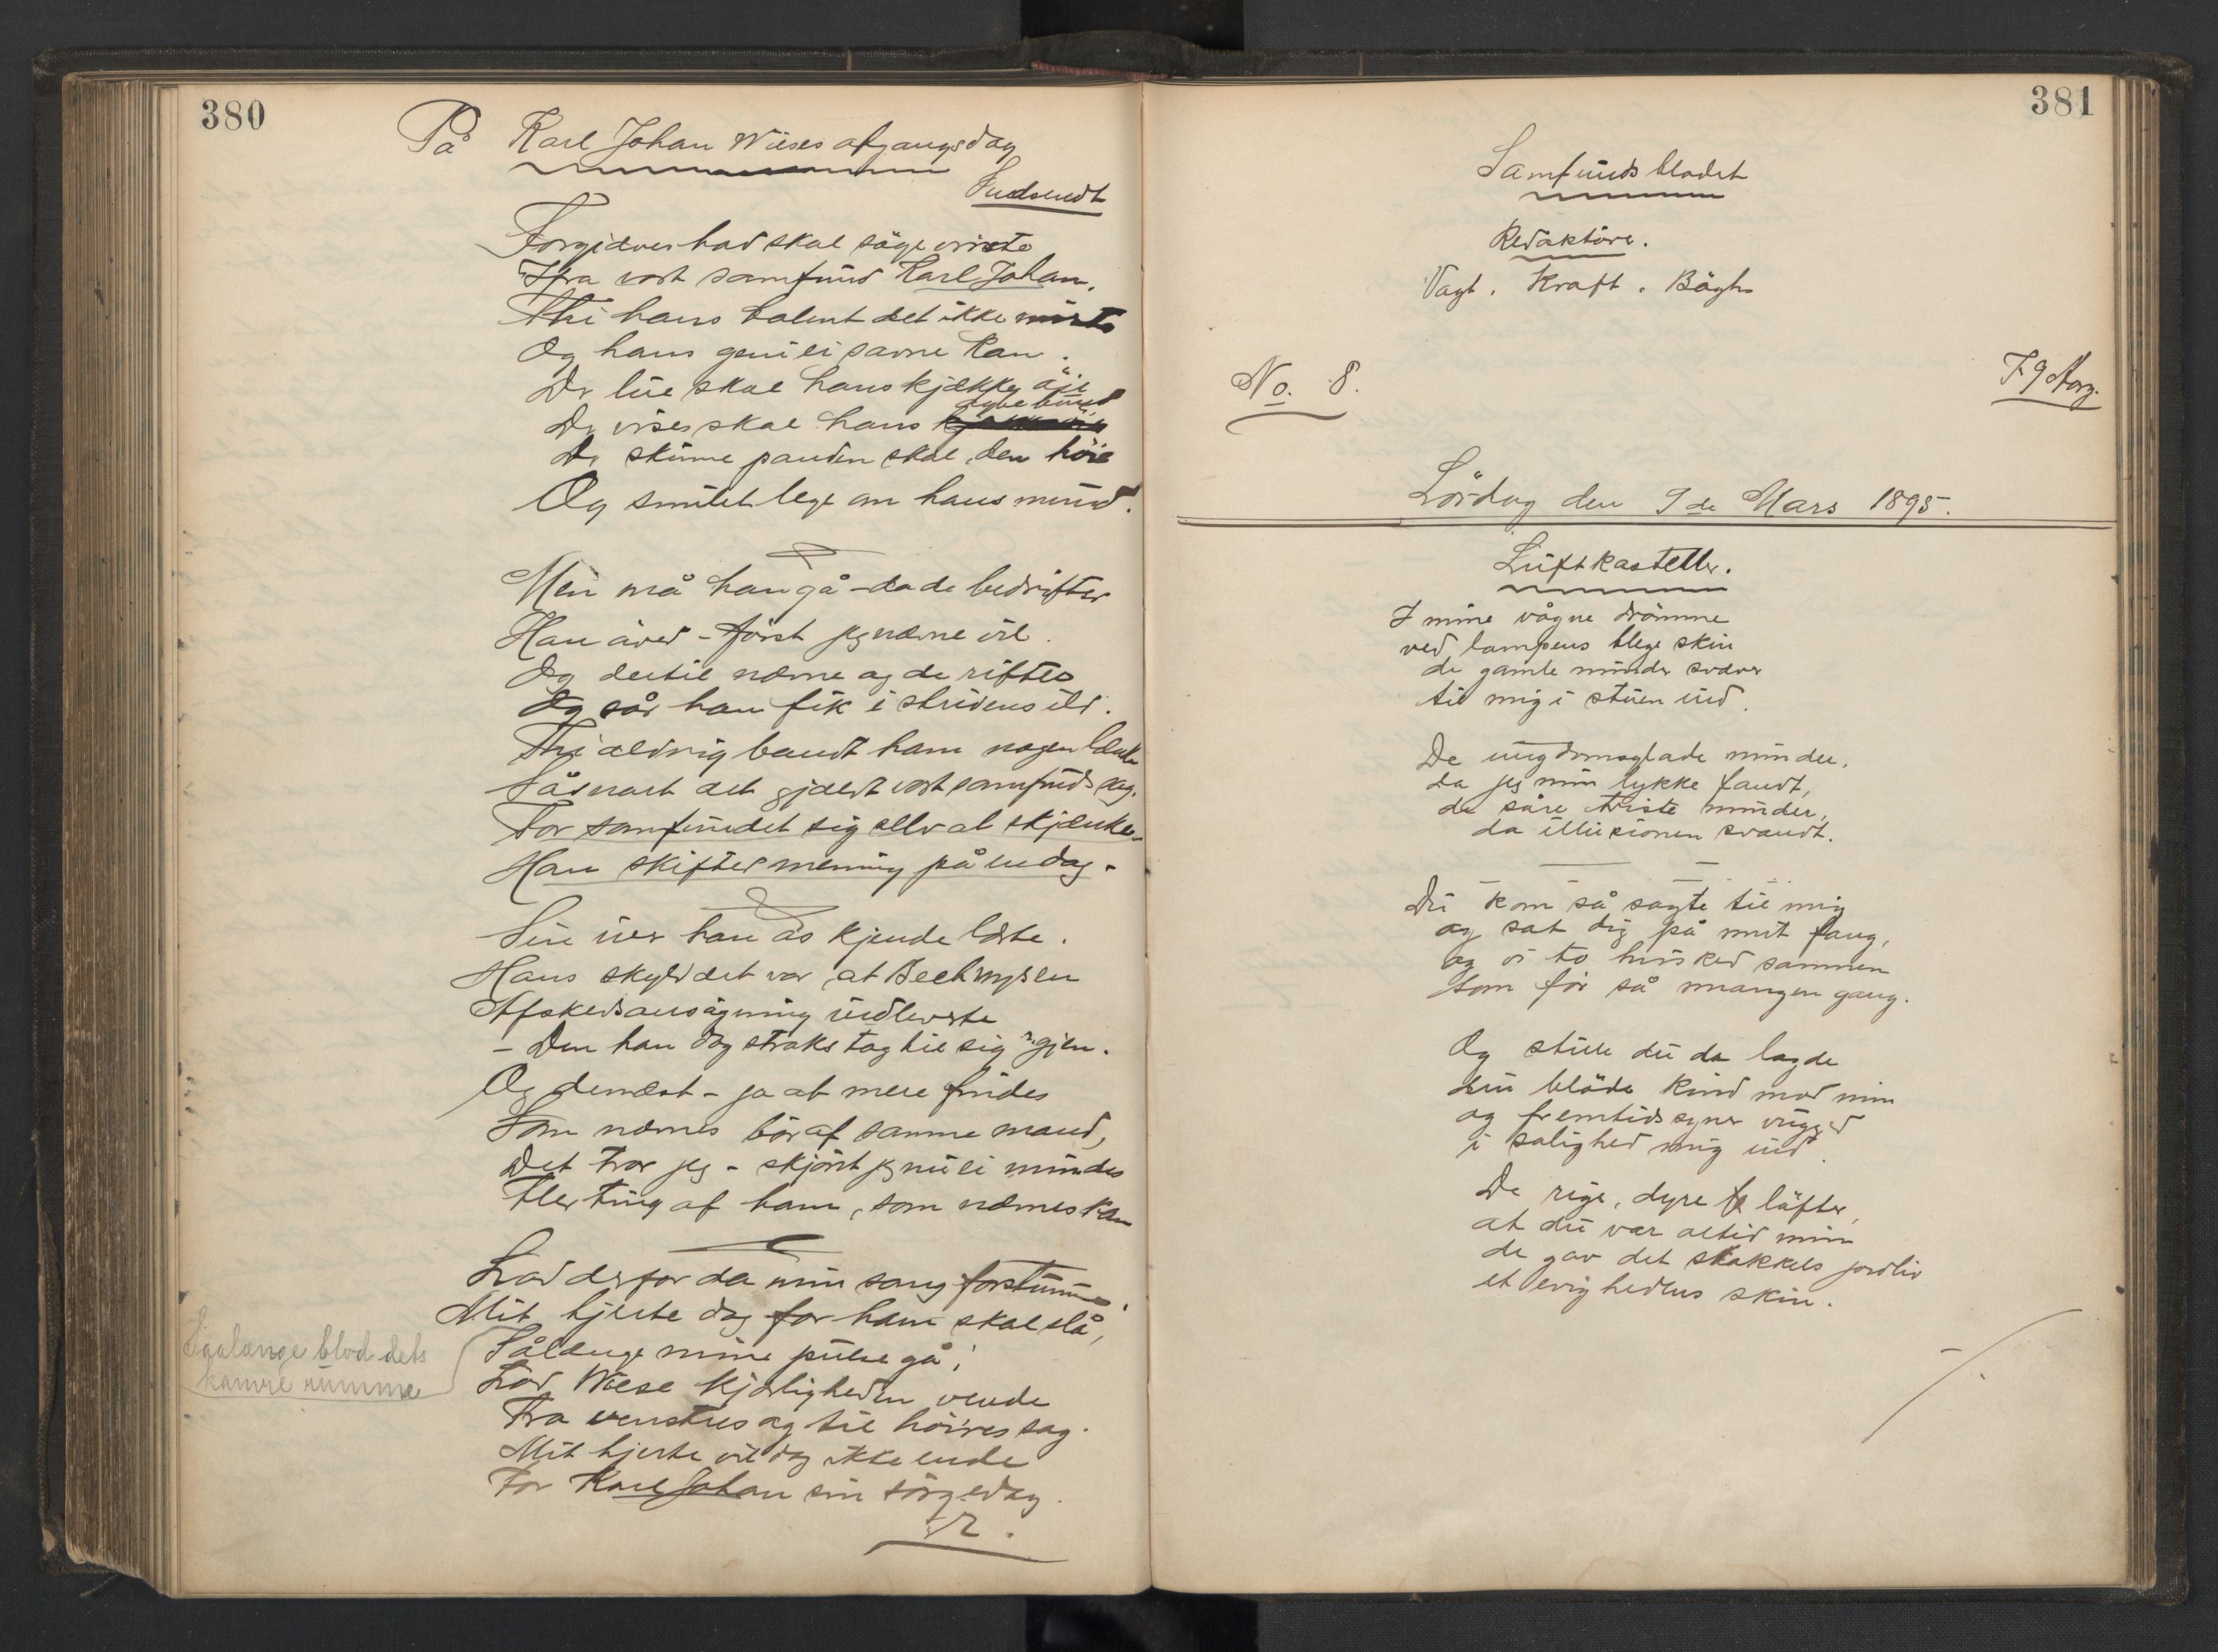 380
På Karl Johan Wieses afgangsdag
Indsendt
Forgjæves had skal söge vriste
Ifra vort samfund Karl Johan.
Thi hans talent det ikke miste
Og hans geni ei savne kan.
Der lue skal hans kjække öie
dybe bund
Der vises skal hans
Der skinne panden skal, den höie
Og smilet lege om hans mund.
Men må han gå - da de bedrifter
Han öved - först jeg nævne vil.
Og dertil nævne og de rifter
Og sår han fik i stridens ild.
Thi aldrig bandt ham nogen lænke
Såsnart det gjaldt vort samfunds sag.
For samfundet sig selv at skjænke
Han skifted mening på en dag.
Sin iver han os kjende lærte.
Hans skyld det var, at Bechmysen
Afskedsansögning indleverte
- Den han dog straks tog til sig igjen.
Og dernæst - ja at mere findes
Som nævnes bör af samme mand,
Det tror jeg - skjönt jeg nu ei mindes
Fler ting af ham, som nævnes kan
Lad derfor da min sang forstumme
Mit hjerte dog for ham skal slå,
Sigalænge blod dets
kamre rumme
Sålænge mine pulse gå;
Lad Wiese kjærligheden vende
Fra venstres og til höires sag.
Mit hjerte vil dog ikke ende
For Karl Johan sin sörgedag.
R.
381
Samfundsbladet
Redaktöre.
Vagt. Kraft. Bögh
No. 8.
F. 9 Aarg.
Lördag den 9de Mars 1895.
Luftkasteller.
I mine vågne drömme
ved lampens blege skin
de gamle minder svæver
til mig i stuen ind.
De ungdomsglade minder,
da jeg min lykke fandt,
de såre triste minder,
da illusionen svandt.
Du kom så sagte til mig
og sat dig på mit fang,
og vi to hvisked sammen
som för så mangen gang.
Og stille du da lagde
din blöde kind mod min
og fremtidssyner vugged
i salighed mig ind.
De rige, dyre löfter,
at du var altid min
de gav det stakkels jordliv
et evighedens skin.